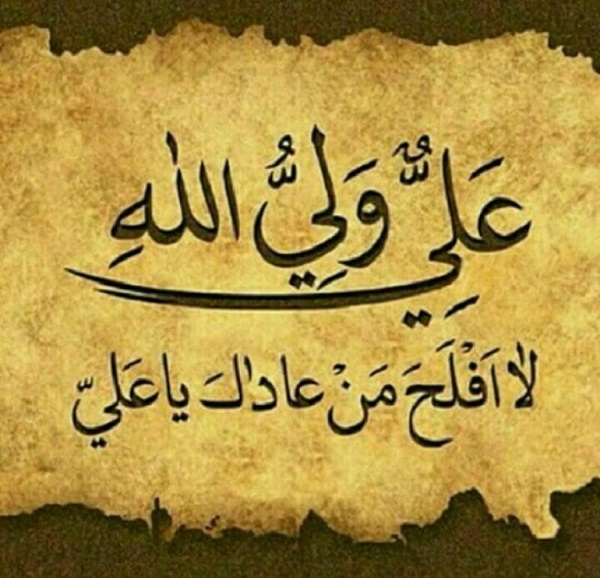 عَلِيٌّ وَلِيُّ اللهِ
لا اَفْلَحَ مَنْ عاداكَ يا عَليّ